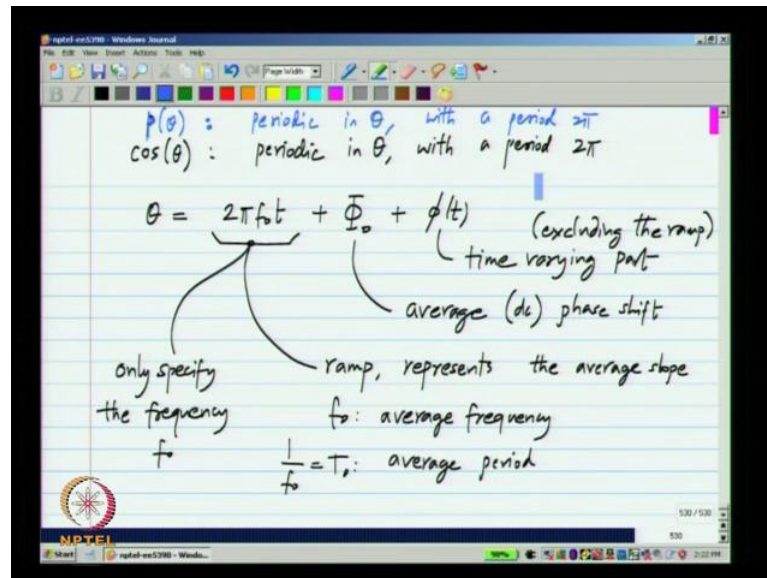 nptel-ee5390 - Windows Journal
File Edit View Insert Actions Tools Help
Page Width
p(θ) : periodic in θ, with a period 2π
cos(θ) : periodic in θ, with a period 2π
θ = 2πf₀t + Φ₀ + φ(t)
(excluding the ramp)
time varying part
average (dc) phase shift
only specify
the frequency
f₀
ramp, represents the average slope
f₀ : average frequency
1/f₀ = T₀ : average period
530 / 530
530
NPTEL
Start
nptel-ee5390 - Windo...
2:22 PM